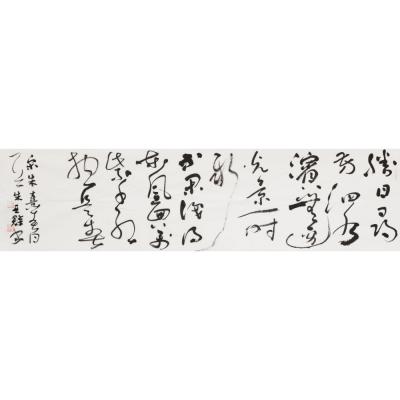 勝日尋
芳泗水
濱無邊
光景一時
新
等閒識得
東風面萬
紫千紅
總是春
宋朱熹